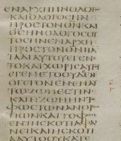 ΕΝΑΡΧΗΗΝΟΛΟΓΟϹ
ΚΑΙΟΛΟΓΟϹΗΝ
ΠΡΟϹΤΟΝΘΝΚΑΙ
ΘϹΗΝΟΛΟΓΟϹΟΥ
ΤΟϹΗΝΕΝΑΡΧΗ
ΠΡΟϹΤΟΝΘΝΠΑ
ΤΑΔΙΑΥΤΟΥΕΓΕΝΕ
ΤΟΚΑΙΧΩΡΙϹΑΥΤΟΥ
ΕΓΕΝΕΤΟΟΥΔΕΝ
ΟΓΕΓΟΝΕΝΕΝΑΥ
ΤΩΖΩΗΕϹΤΙΝ
ΚΑΙΗΖΩΗΗΝΤΟ
ΦΩϹΤΩΝΑΝΘΡΩ
ΠΩΝΚΑΙΤΟΦΩϹ
ΕΝΤΗϹΚΟΤΙΑΦΑΙ
ΝΕΙΚΑΙΗϹΚΟΤΙ